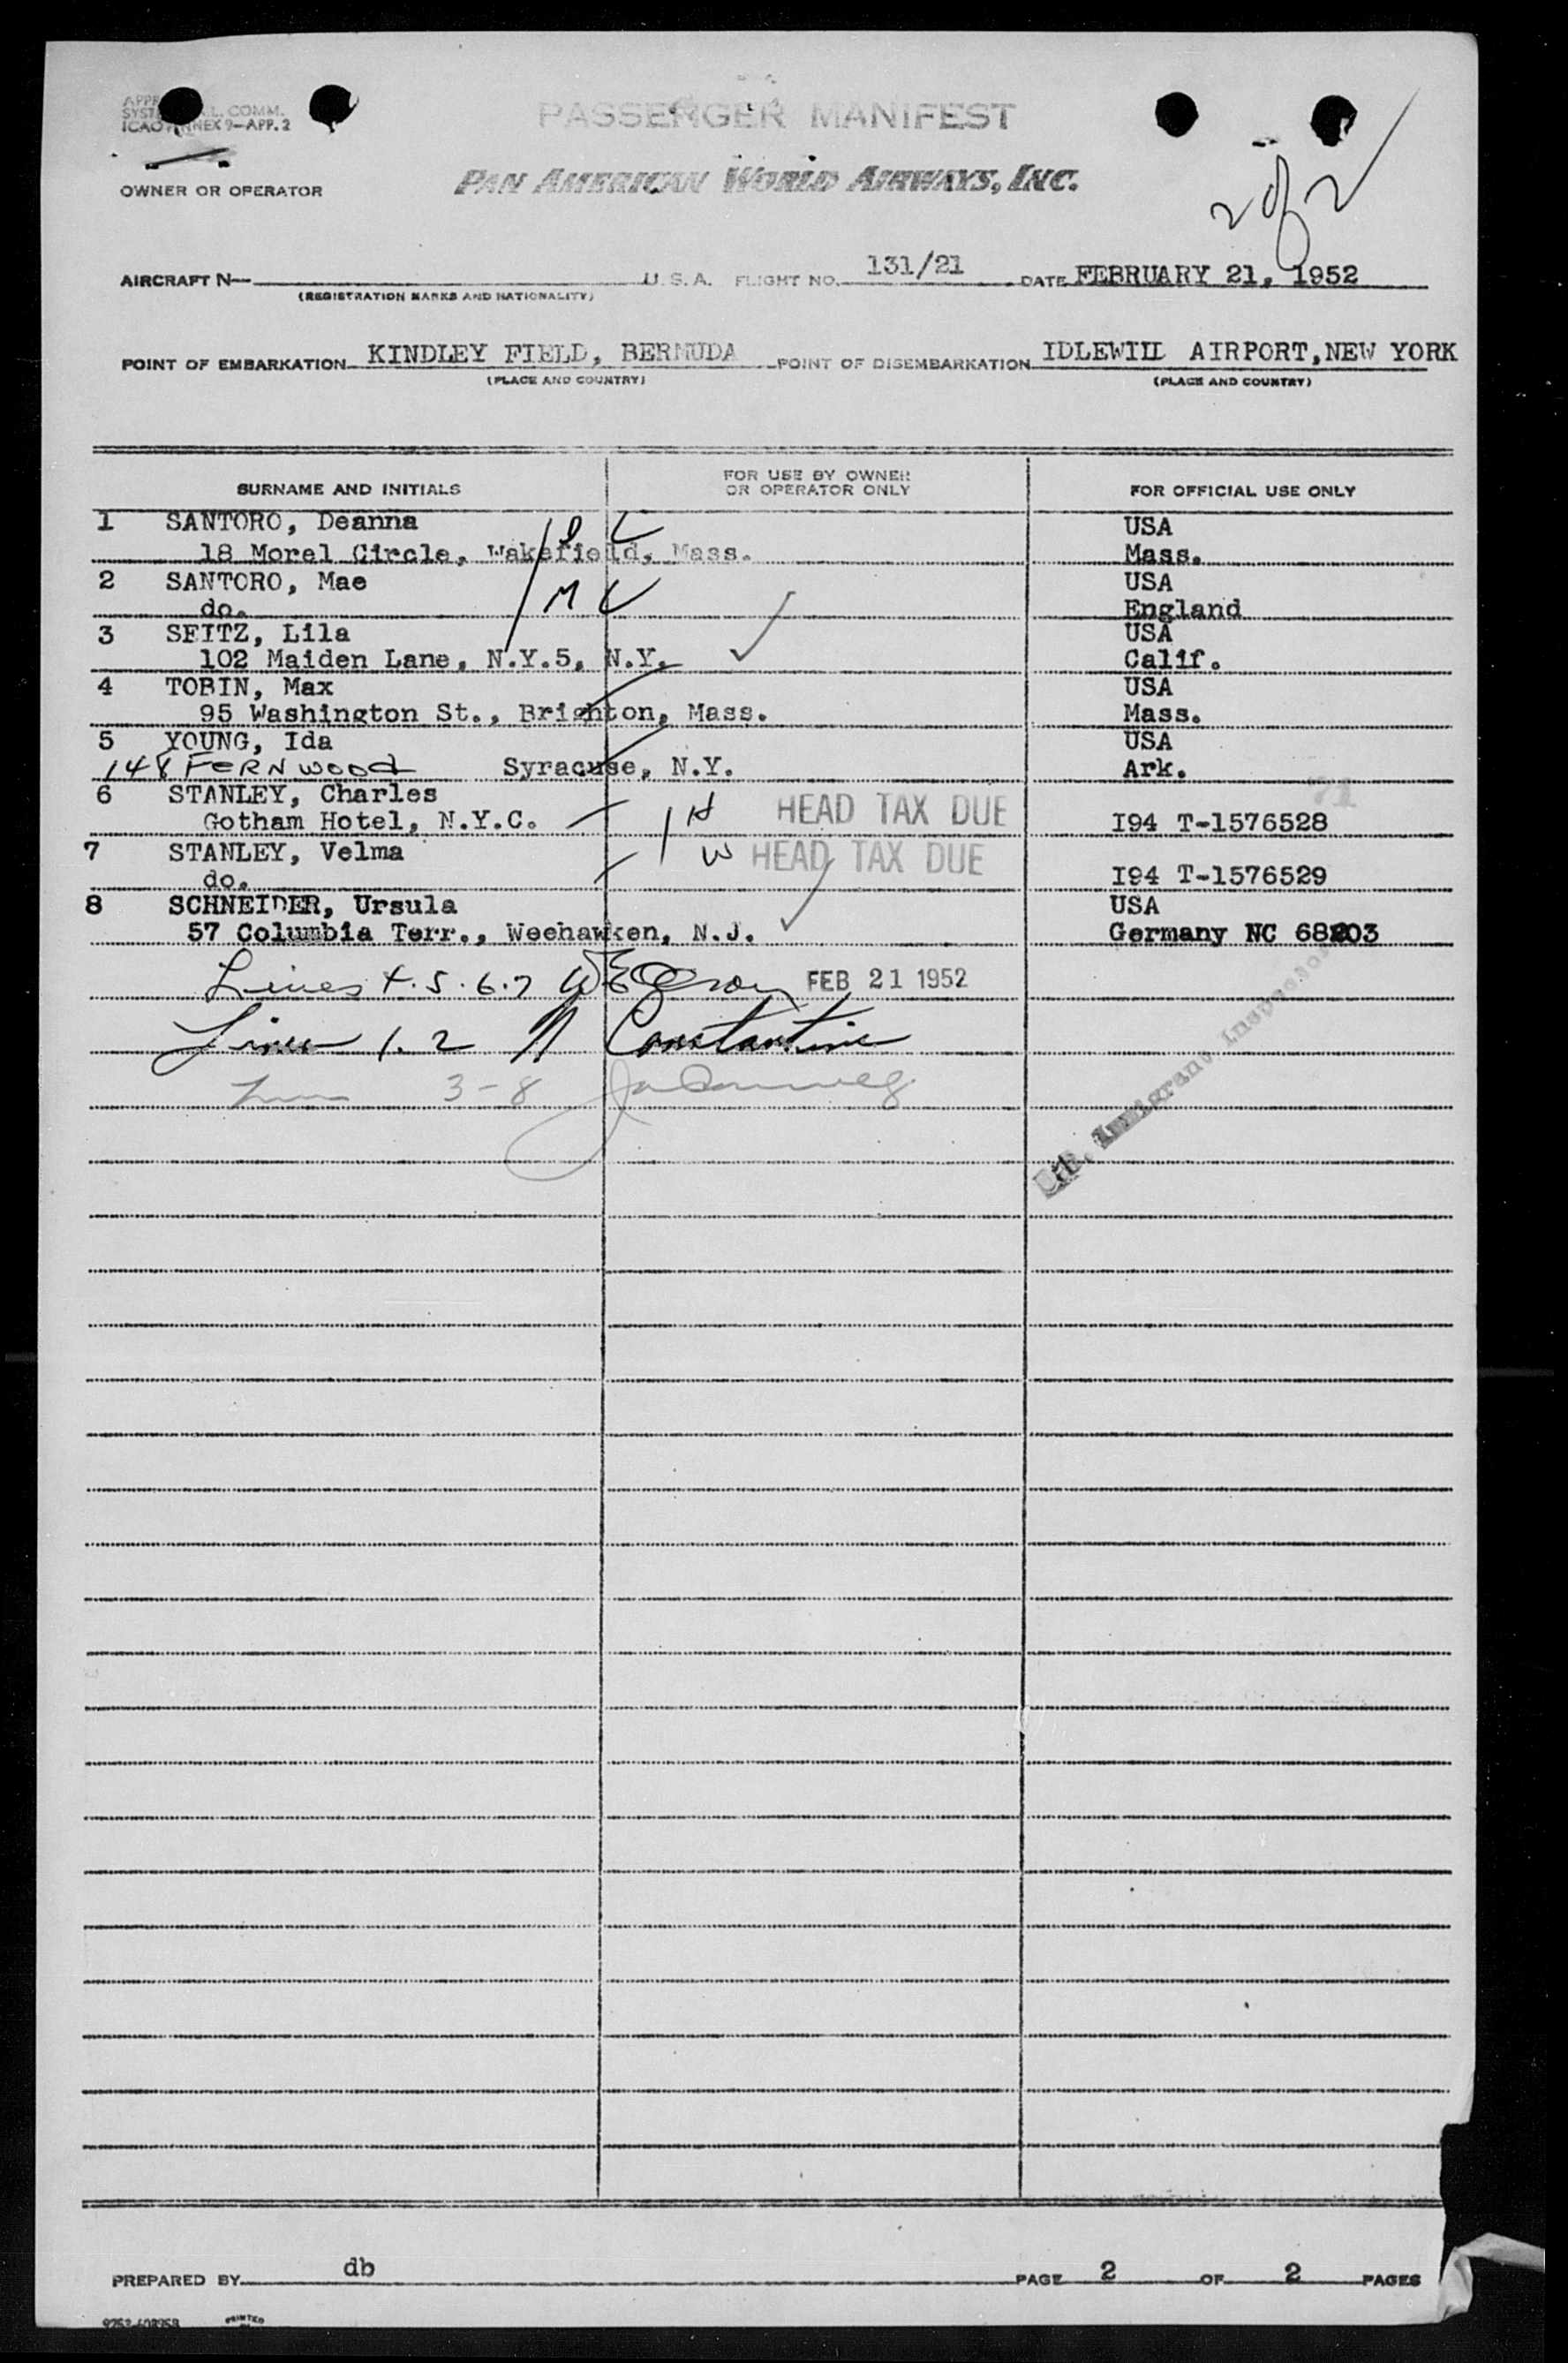 L. COMM.
ICAO ANNEX 9—APP. 2
PASSENGER MANIFEST
OWNER OR OPERATOR
PAN AMERICAN WORLD AIRWAYS, INC.
2 of 2
AIRCRAFT N— U.S.A. FLIGHT NO. 131/21 DATE FEBRUARY 21, 1952
(REGISTRATION MARKS AND NATIONALITY)
POINT OF EMBARKATION KINDLEY FIELD, BERMUDA POINT OF DISEMBARKATION IDLEWILL AIRPORT, NEW YORK
(PLACE AND COUNTRY) (PLACE AND COUNTRY)
SURNAME AND INITIALS FOR USE BY OWNER OR OPERATOR ONLY FOR OFFICIAL USE ONLY
1 SANTORO, Deanna USA
18 Morel Circle, Wakefield, Mass. Mass.
2 SANTORO, Mae USA
do. M England
3 SEITZ, Lila USA
102 Maiden Lane, N.Y.5, N.Y. Calif.
4 TOBIN, Max USA
95 Washington St., Brighton, Mass. Mass.
5 YOUNG, Ida USA
148 FERNWOOD Syracuse, N.Y. Ark.
6 STANLEY, Charles HEAD TAX DUE
Gotham Hotel, N.Y.C. 1 H I94 T-1576528
7 STANLEY, Velma W HEAD TAX DUE
do. I94 T-1576529
8 SCHNEIDER, Ursula USA
57 Columbia Terr., Weehawken, N.J. Germany NC 68203
Lines 4.5.6.7 FEB 21 1952
Lines 1.2 N Constantine
Lines 3-8
U.S. Immigrant Inspector
PREPARED BY db PAGE 2 OF 2 PAGES
PRINTED